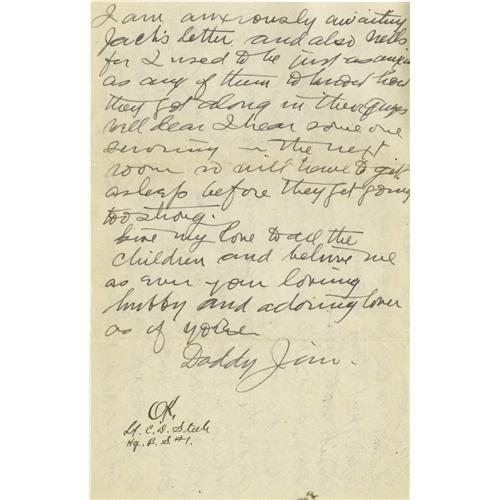 I am anxiously awaiting
Jack's letter, and also Nells
for I used to be just as anxious
as any of them to know how
they got along in their
Well dear I hear some one
snoring in the next
room so will have to get
asleep before they get going
too strong.
Give my love to all the
children and believe me
as ever your loving
hubby and adoring lover
as of yore
Daddy Jim.
OK,
Lt. C. D.
Hq. B. S #1.